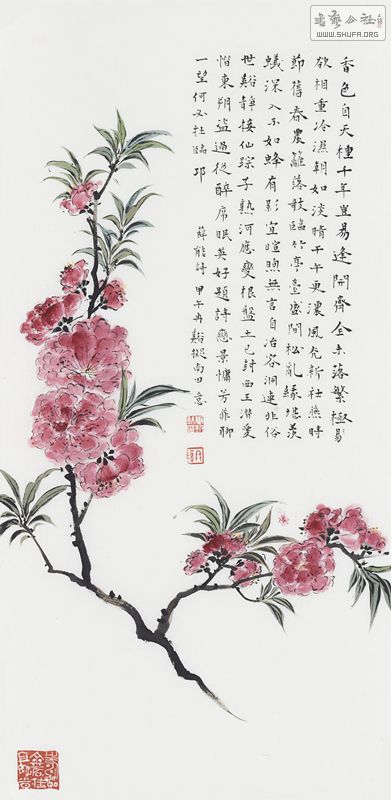 香色自天種十年豈易逢開齊全未落繁極易
欲相重冷濕朝如淡晴干午更濃風光新社燕時
節舊春農籬落欹臨竹亭臺盛間松亂緣堪羨
蟻深入不如蜂有影宜暄煦無言自冶容洞連非俗
世谿靜接仙踪子熟河應變根盤土已封西王潛愛
惜東朔盜過從醉席眠英好題詩戀景慵芳菲聊
一望何必杜臨邛
薛能詩 甲午冉谿擬南田意
書法公社
WWW.SHUFA.ORG